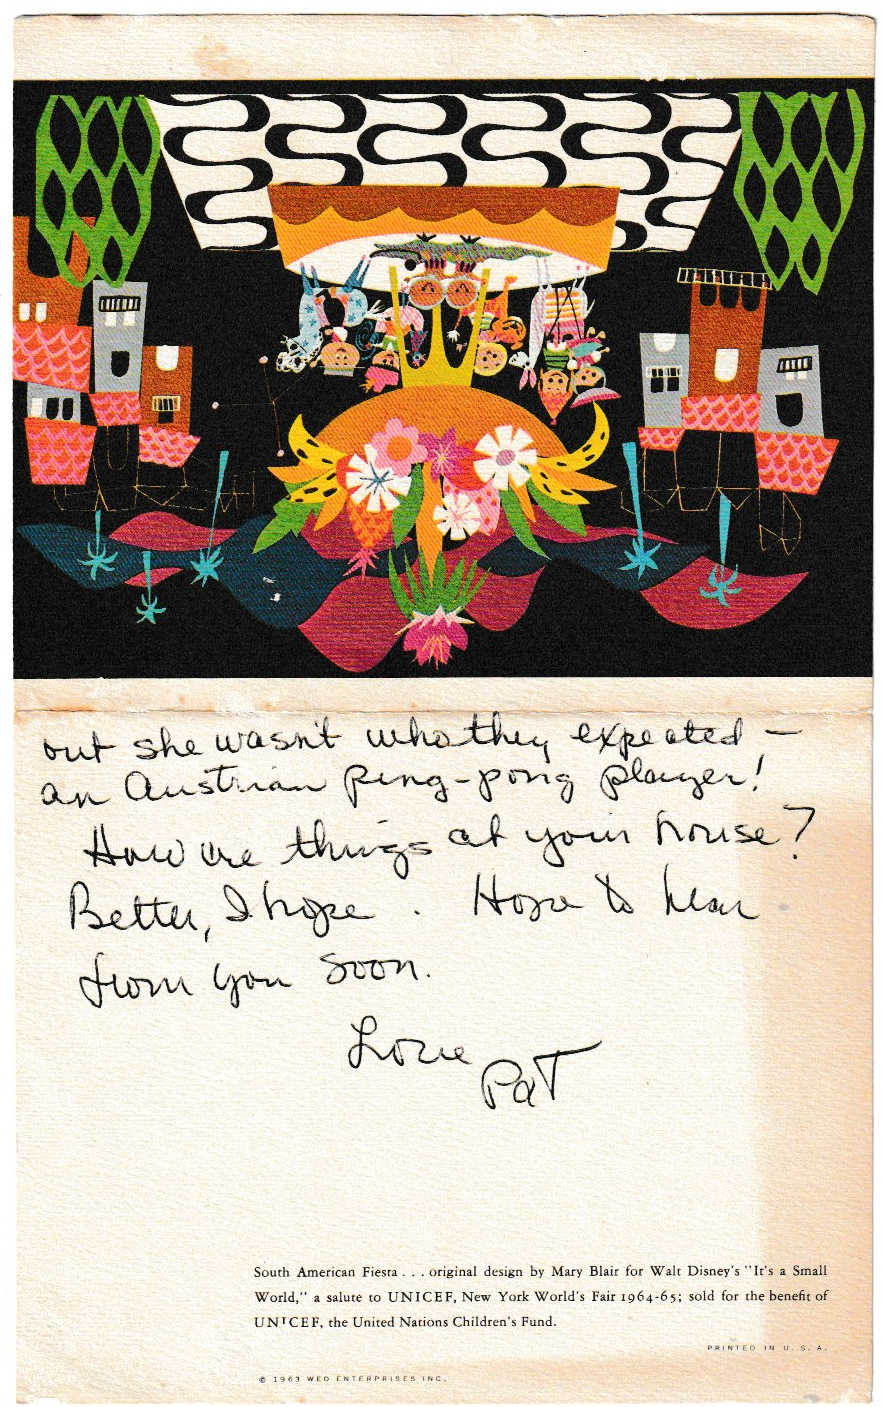 but she wasn't who they expected —
an Austrian ping-pong player!
How are things at your house?
Better, I hope. Hope to hear
from you soon.
Love
Pat
South American Fiesta . . . original design by Mary Blair for Walt Disney's "It's a Small
World," a salute to UNICEF, New York World's Fair 1964-65; sold for the benefit of
UNICEF, the United Nations Children's Fund.
PRINTED IN U. S. A.
© 1963 WED ENTERPRISES INC.